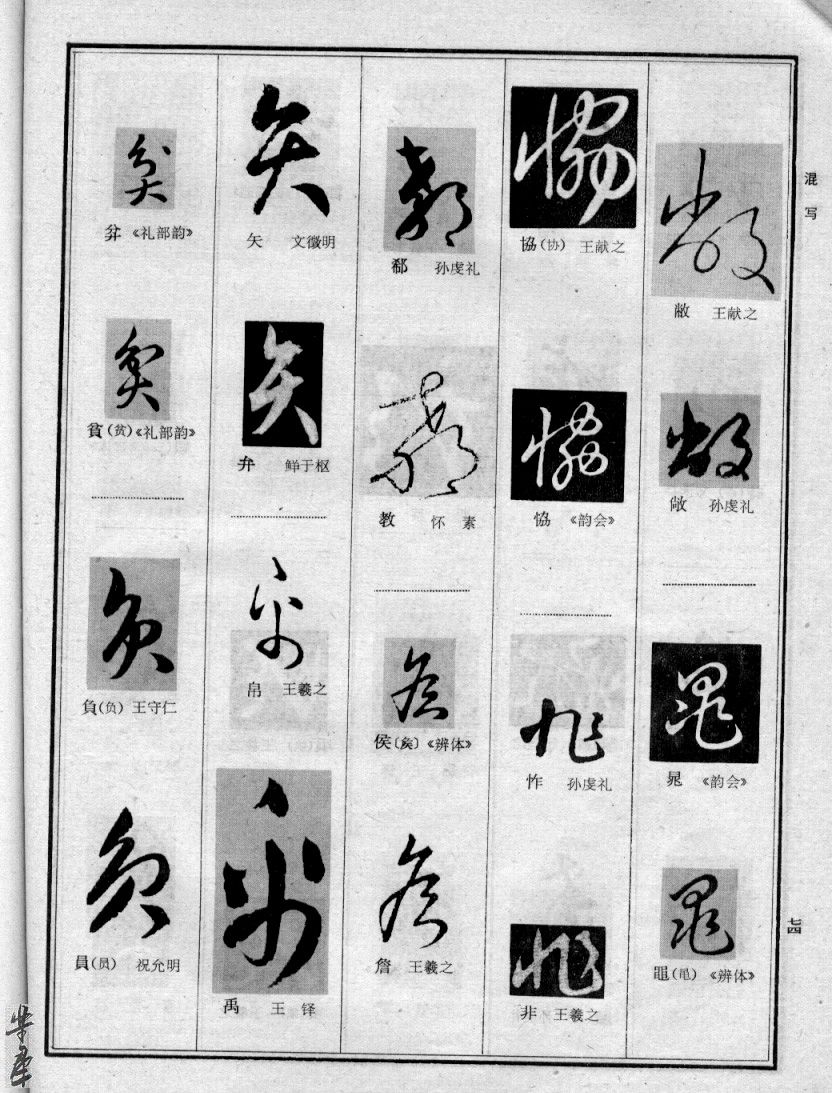 混写
敝 王献之
敞 孙虔礼
晁 《韵会》
黽(黾) 《辨体》
協(协) 王献之
恊 《韵会》
怍 孙虔礼
非 王羲之
郗 孙虔礼
教 怀素
侯〔矦〕《辨体》
詹 王羲之
矢 文徵明
弁 鲜于枢
帛 王羲之
禹 王铎
《礼部韵》
貧(贫)《礼部韵》
負(负) 王守仁
員(员) 祝允明
七四